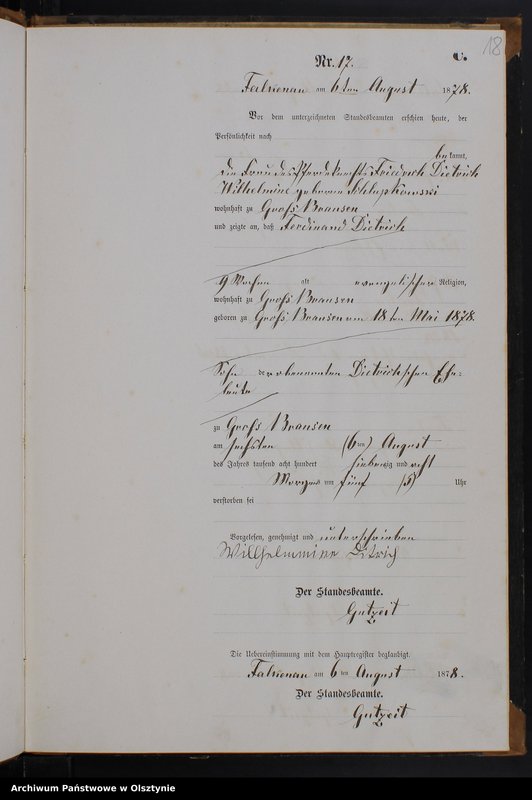 18
C.
Nr. 12.
Falkenau am 6ten August 1878.
Vor dem unterzeichneten Standesbeamten erschien heute, der
Persönlichkeit nach
bekannt,
die Frau des Pferdeknechts Friedrich Dietrich
Wilhelmine geborene Schlupkowski
wohnhaft zu Groß Bransen
und zeigte an, daß Ferdinand Dietrich
9 Wochen alt evangelischer Religion,
wohnhaft zu Groß Bransen
geboren zu Groß Bransen am 18ten Mai 1878.
Sohn der obenannten Dietrichschen Ehe-
leute
zu Groß Bransen
am sechsten (6ten) August
des Jahres tausend acht hundert siebenzig und acht
Morgens um fünf (5) Uhr
verstorben sei
Vorgelesen, genehmigt und unterschrieben
Willhelmmine Ditrich
Der Standesbeamte.
Gutzeit
Die Uebereinstimmung mit dem Hauptregister beglaubigt.
Falkenau am 6ten August 1878.
Der Standesbeamte.
Gutzeit
Archiwum Państwowe w Olsztynie